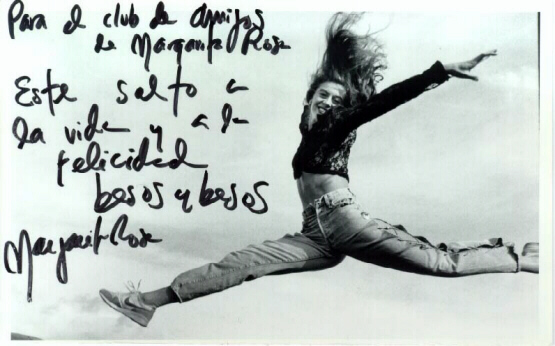 Para el club de amigos
de Margarita Rosa
Este salto a
la vida y a la
felicidad
besos y besos
Margarita Rosa